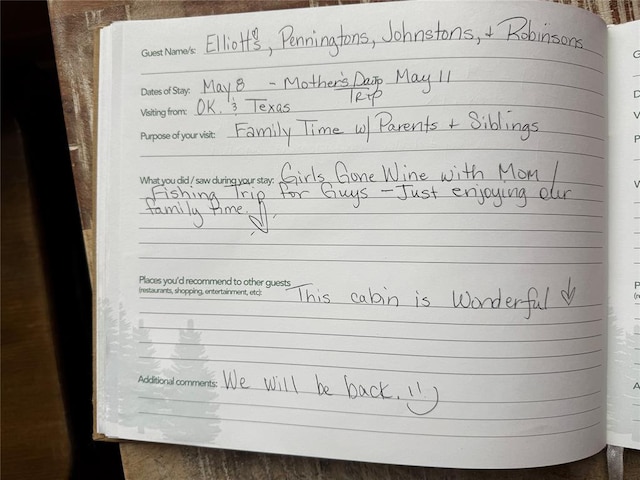 Guest Name/s: Elliott's, Penningtons, Johnstons, + Robinsons
Dates of Stay: May 8 - Mother's Day Trip May 11
Visiting from: OK. & Texas
Purpose of your visit: Family Time w/ Parents + Siblings
What you did / saw during your stay: Girls Gone Wine with Mom /
Fishing Trip for Guys - Just enjoying our
family time.
Places you'd recommend to other guests
(restaurants, shopping, entertainment, etc): This cabin is Wonderful
Additional comments: We will be back. !!